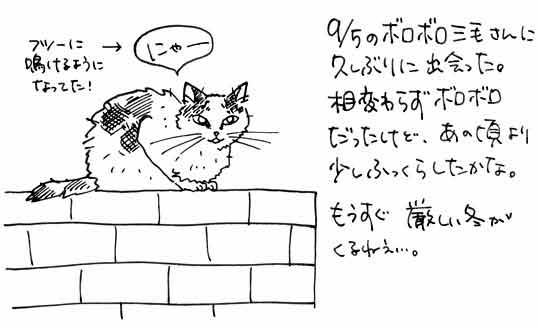 フツーに
鳴けるように
なってた!
→
にゃー
9/5のボロボロ三毛さんに
久しぶりに出会った。
相変わらずボロボロ
だったけど、あの頃より
少しふっくらしたかな。
もうすぐ厳しい冬が
くるねえ…。